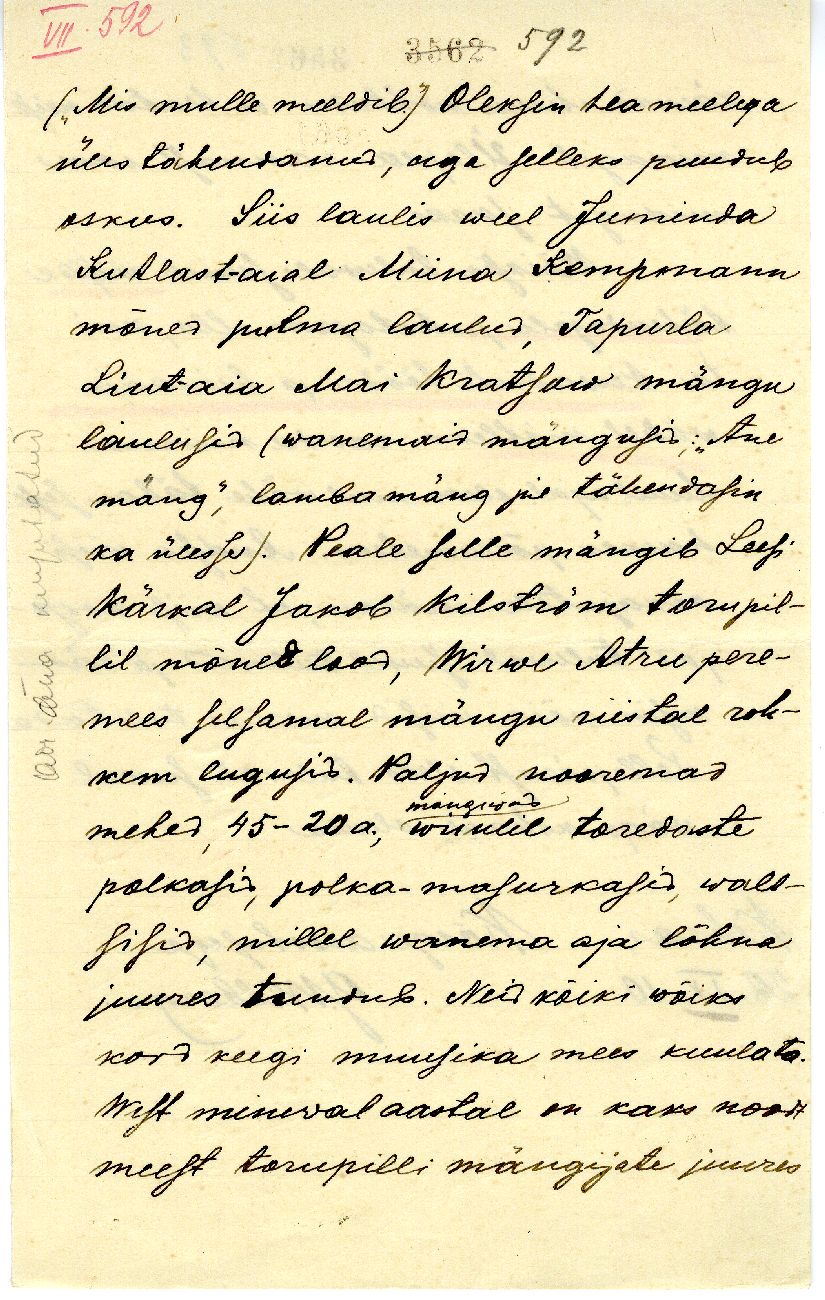 VII. 592
3562 592
("Mis mulle meeldib".) Oleksin hea meelega
üles tähendanud, aga selleks puudub
oskus. Siis laulis weel Juminda
Kutlast-aial Miina Kempmann
mõned pulma laulud, Tapurla
Liut-aia Mai Kratsow mängu
laulusid (wanemaid mängusid: "Ane
mäng", lamba mäng jne tähendasin
ka ülesse). Peale selle mängib Leesi
Kärkal Jakob Kilström torupil-
lil mõned lood, Wirwe Atru pere-
mees selsamal mängu riistal roh-
kem lugusid. Paljud nooremad
mängiwad
mehed, 45-20 a., wiiulil toredaste
polkasid, polka-masurkasid, walt-
sisid, millel wanema aja lõhna
juures tundub. Neid kõiki wõiks
kord keegi muusika mees kuulata.
West minewal aastal on kaks noort
meest torupilli mängijate juures